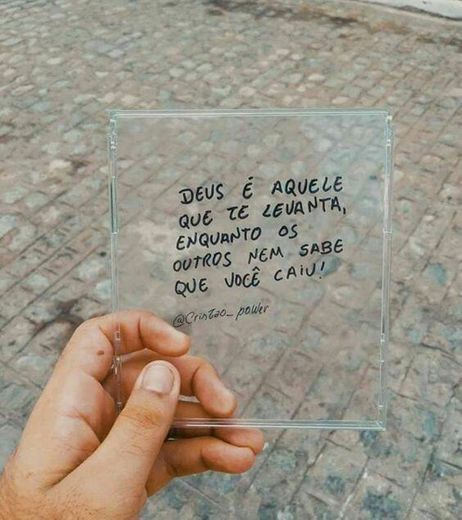 DEUS É AQUELE
QUE TE LEVANTA,
ENQUANTO OS
OUTROS NEM SABE
QUE VOCÊ CAIU!
@Cristao_power